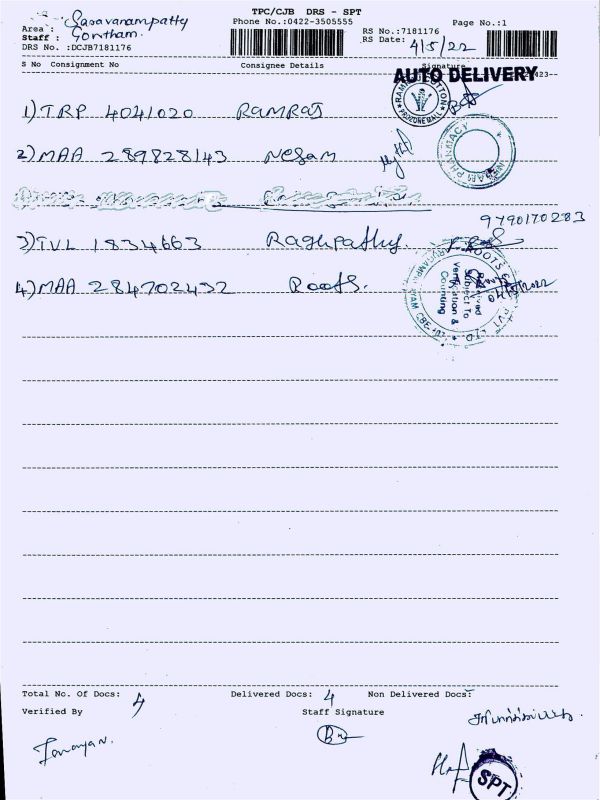 TPC/CJB DRS - SPT
Phone No.:0422-3505555
Page No.:1
Area : Saravanampatty
Staff : Gowtham.
DRS No. :DCJB7181176
RS No.:7181176
RS Date: 4/5/22
S No Consignment No Consignee Details Signature
AUTO DELIVERY
1) TRP 4041020 RAMRAJ
2) MAA 289828143 Nesam
9790170283
3) TVL 1834663 Ragupathy.
4) MAA 284702422 Roots.
Received
Subject To
Verification &
Counting
Total No. Of Docs: 4 Delivered Docs: 4 Non Delivered Docs:
Verified By Staff Signature
SPT